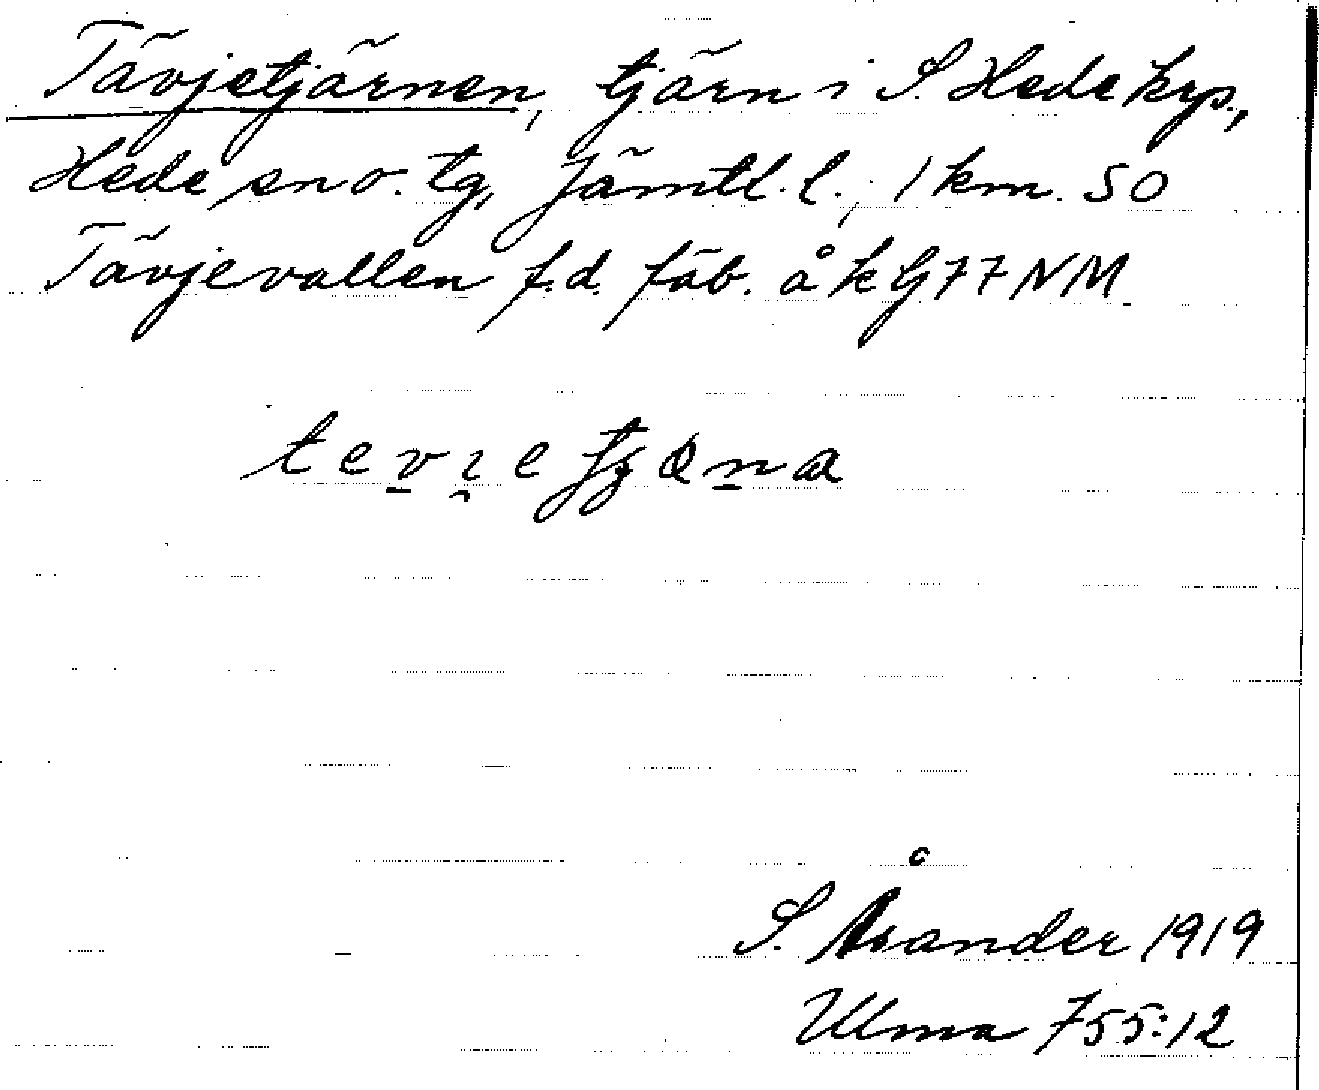 Tävjetjärnen, tjärn i S. Hede krp.,
Hede sn o. tg, Jämtl. l., 1 km. SO
Tävjevallen f.d. fäb. å kG77NM.
S. Åsander 1919
Ulma 755:12